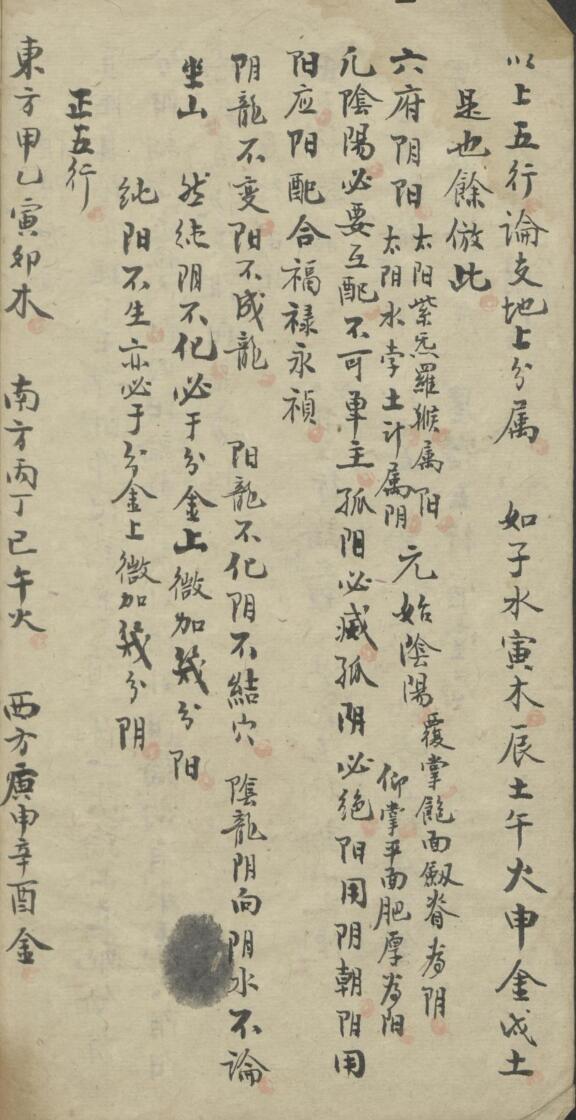 以上五行論支地上分属 如子水寅木辰土午火申金戌土
是也餘倣此
六府阴阳 太阳紫炁羅猴属阳
太阴水孛土计属阴
元始陰陽 覆掌飽面劔脊為阴
仰掌平面肥厚為阳
凢陰陽必要互配不可单主孤阳必滅孤阴必绝阳用阴朝阴用
阳应阳配合福禄永禎
阴龍不变阳不成龍 阳龍不化阴不結穴 陰龍阴向阴水不论
坐山 然纯阴不化必于分金上微加幾分阳
纯阳不生亦必于分金上微加幾分阴
正五行
東方甲乙寅卯木 南方丙丁巳午火 西方庚申辛酉金